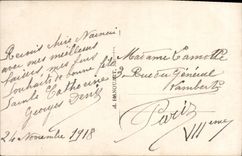 Reçois chère Naincin
avec mes meilleurs
baisers, mes
souhaits de bonne fête
Sainte Catherine
Georges
24 Novembre 1918
Madame Camotte
2 Rue du Général
Lambert
Paris
VII ème